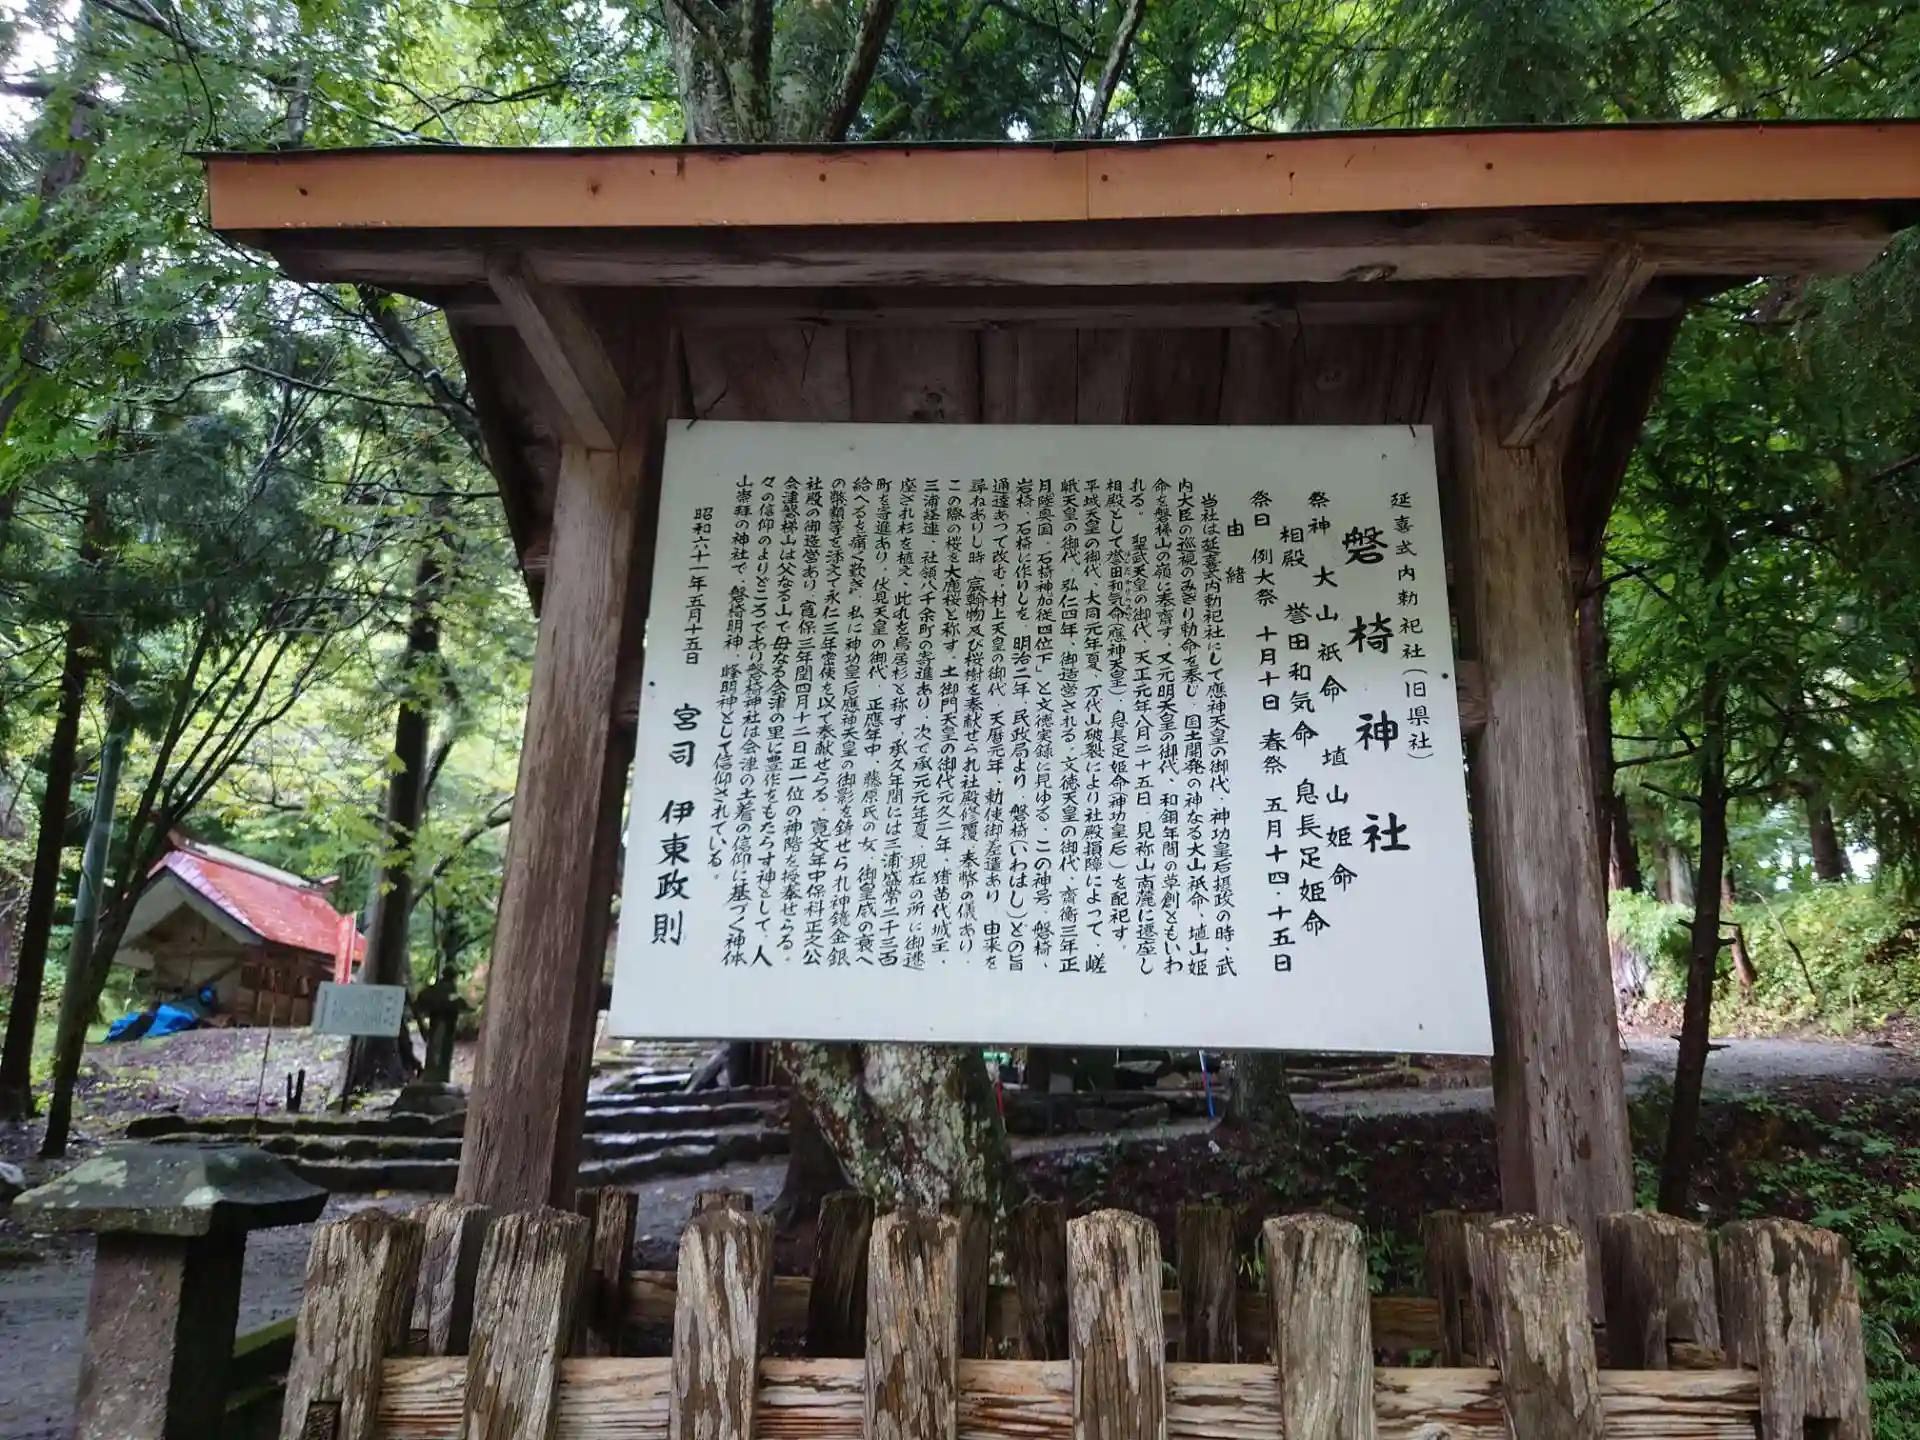 延喜式内勅祀社(旧県社)
磐椅神社
祭神 大山祇命 埴山姫命
相殿 誉田和気命 息長足姫命
祭日 例大祭 十月十日 春祭 五月十四・十五日
由緒
当社は延喜式内勅祀社にして應神天皇の御代、神功皇后摂政の時、武
内大臣の巡視のみぎり勅命を奉じ、国土開発の神なる大山祇命、埴山姫
命を磐梯山の嶺に奉斎す。又元明天皇の御代、和銅年間の草創ともいわ
れる。聖武天皇の御代、天正元年八月二十五日、見祢山南麓に遷座し
相殿として誉田和気命(應神天皇)、息長足姫命(神功皇后)を配祀す。
平城天皇の御代、大同元年夏、万代山破裂により社殿損障によって、嵯
峨天皇の御代、弘仁四年、御造営される。文徳天皇の御代、斎衡三年正
月陸奥国、石椅神加従四位下」と文徳実録に見ゆる、この神号、磐椅、
岩椅、石椅に作りしを、明治二年、民政局より、磐椅(いわはし)との旨
通達あって改む。村上天皇の御代、天暦元年、勅使御差遣あり、由来を
尋ねありし時、宸翰物及び桜樹を奉献せられ社殿修覆、奉幣の儀あり、
この際の桜を大鹿桜と称す。土御門天皇の御代元久二年、猪苗代城主、
三浦経連、社領八千余町の寄進あり、次で承元元年夏、現在の所に御遷
座され杉を植え、此れを鳥居杉と称す。承久年間には三浦盛常二千三百
町を寄進あり。伏見天皇の御代、正應年中、藤原氏の女、御皇威の衰へ
給へるを痛く歎き、私に神功皇后應神天皇の御影を鋳せられ神鏡金銀
の幣類等を添えて永仁三年密使を以て奉献せらる。寛文年中保科正之公
社殿の御造営あり、寛保三年閏四月十二日正一位の神階を授奉せらる。
会津磐梯山は父なる山で母なる会津の里に豊作をもたらす神として、人
々の信仰のよりどころであり磐椅神社は会津の土着の信仰に基づく神体
山崇拝の神社で、磐椅明神、峰明神として信仰されている。
昭和六十一年五月十五日
宮司 伊東政則